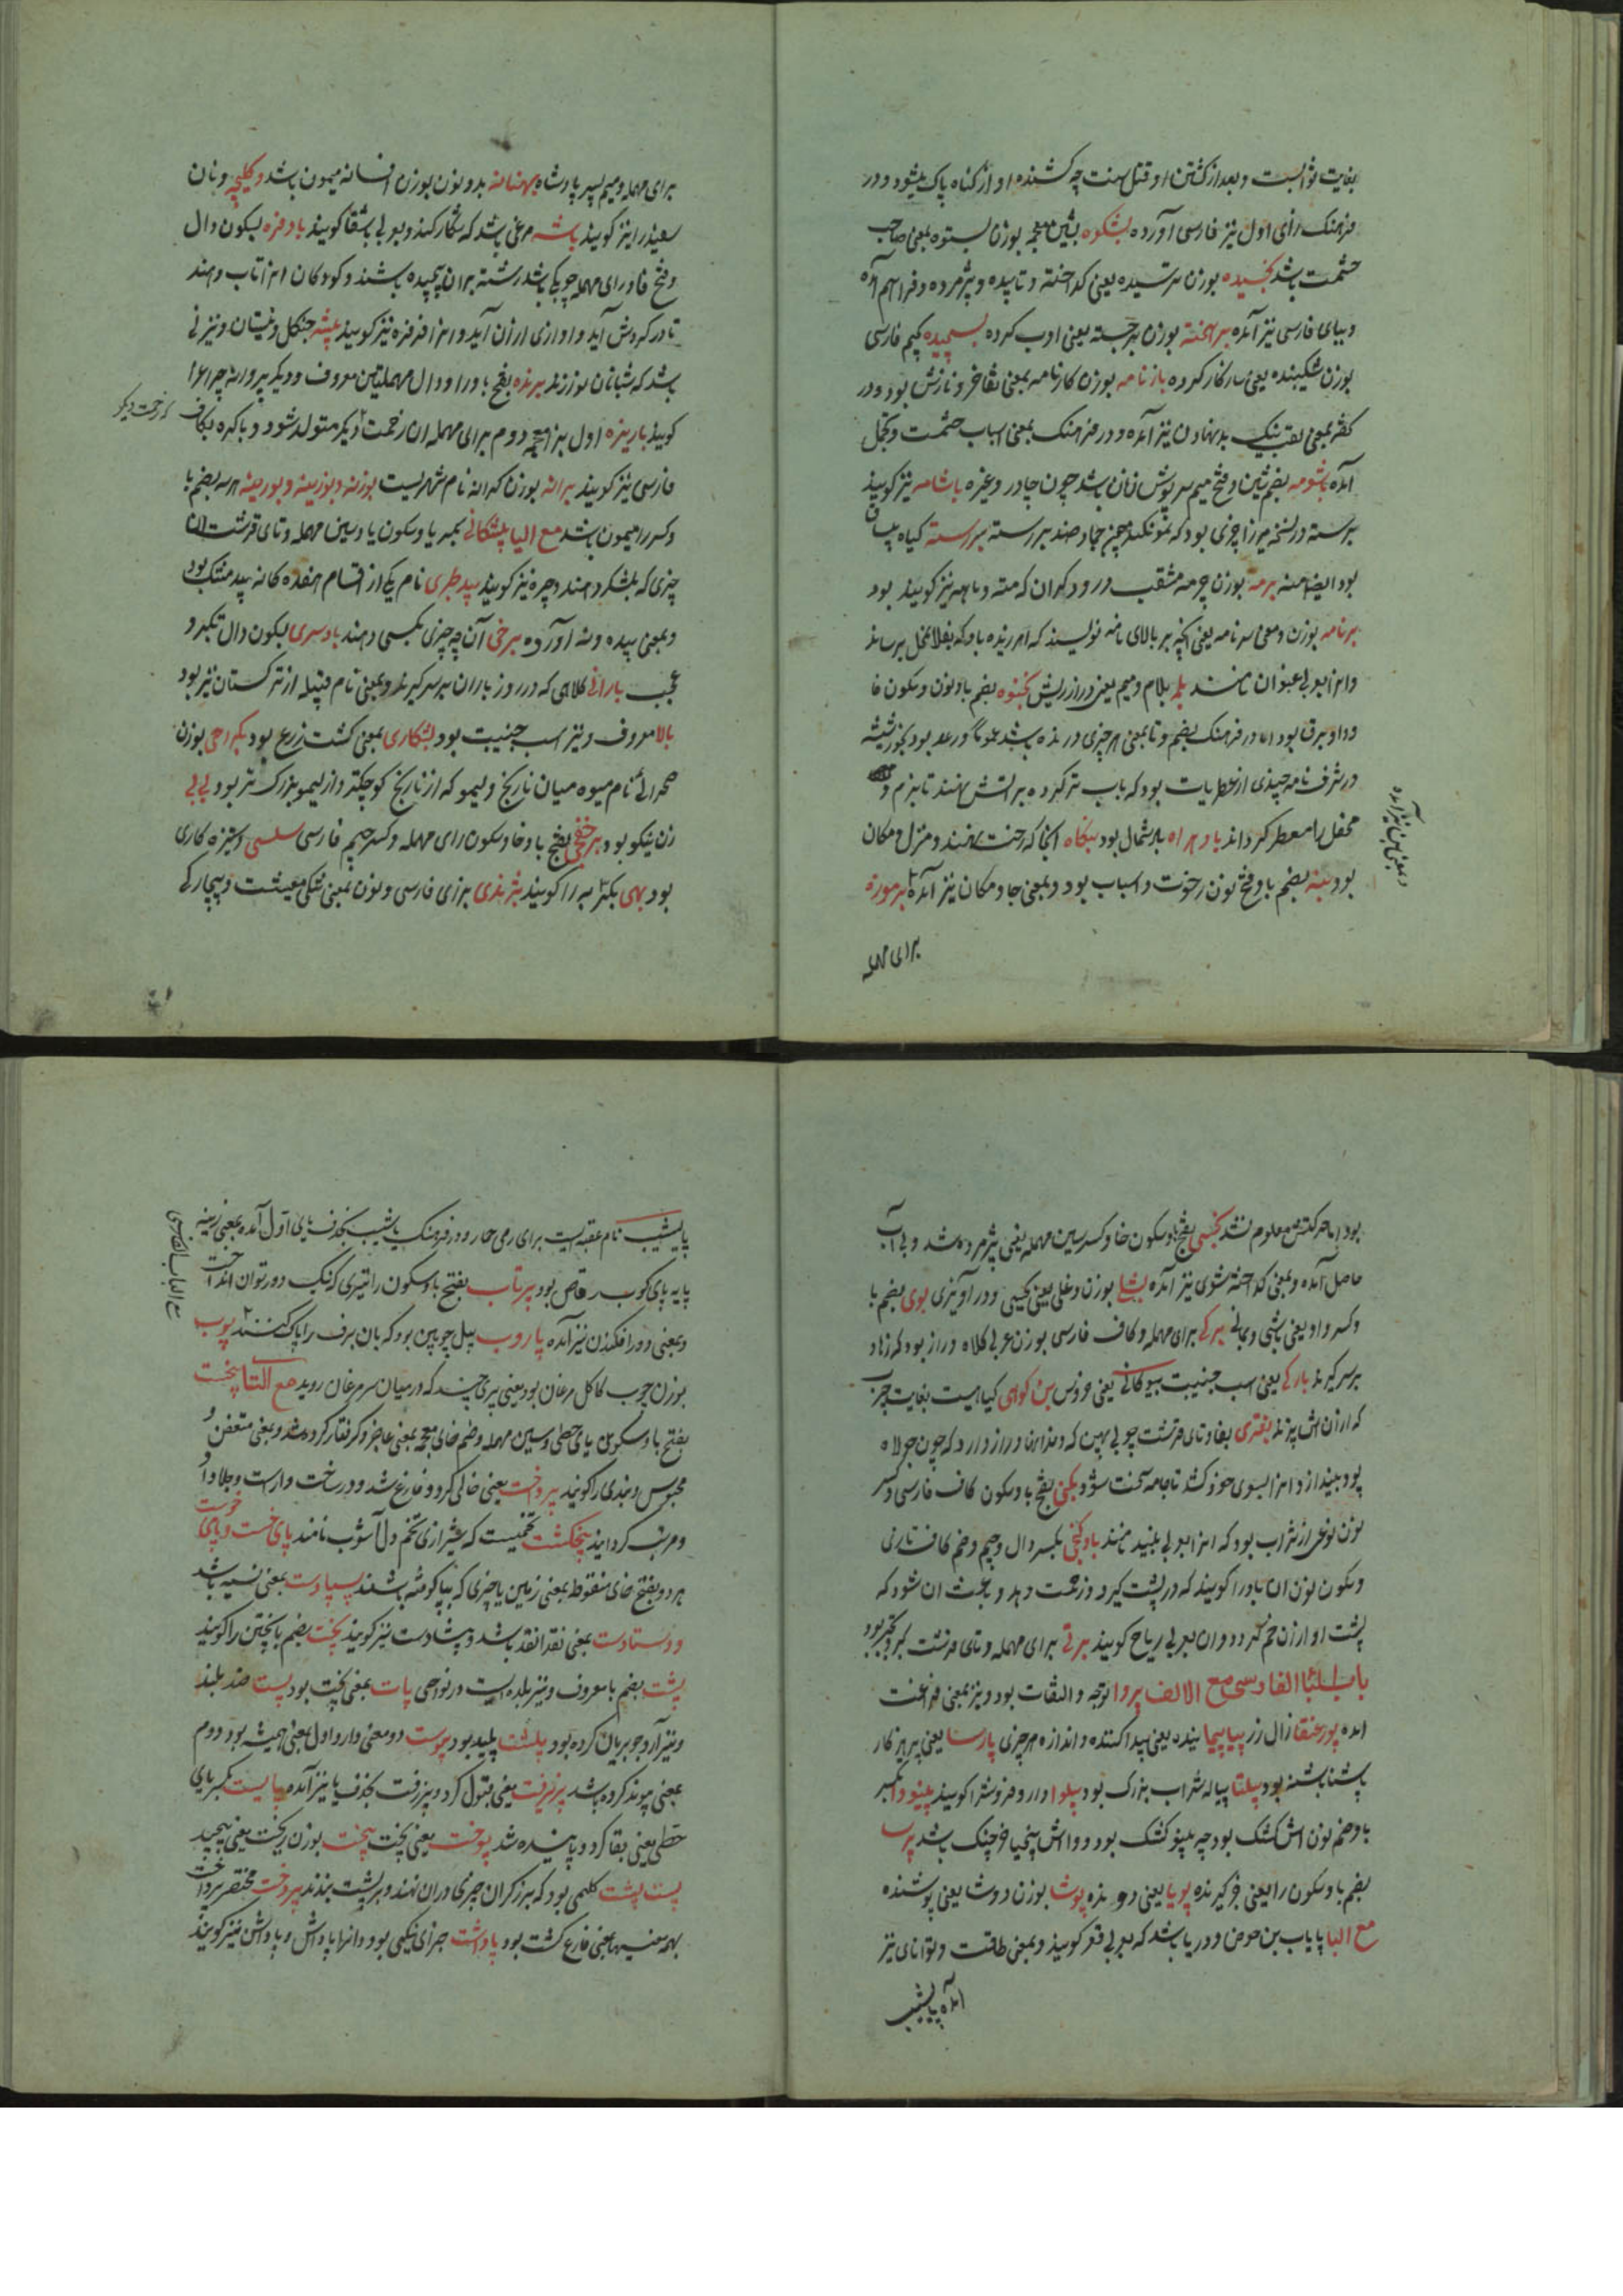 بغایت ثوابست و بعد از کشتن او قتل بهنت چه کشنده او از کناه پاک میشود و در
فرهنک رای اول نیز فارسی آورده بشکوه بشین معجمه بوزن بستوه بمعنی صاحب
حشمت باشد بخسیده بوزن ترسیده یعنی کداخته و تاپیده و پژمرده و فراهم آمده
و ببای فارسی نیز آمده برهخته بوزن برجسته یعنی ادب کرده بسیجیده بجیم فارسی
بوزن شکیبنده یعنی ساز کار کرده بازنامه بوزن کارنامه بمعنی تفاخر و نازش بود و در
بمعنی لقب نیک بد نهادن نیز آمده و در فرهنک بمعنی اسباب حشمت و تجمل
آمده باشومه بضم شین و فتح میم سرپوش زنان باشد چون چادر و غیره باشامه نیز کویند
بربسته در نسخه میرزا چیزی بود که نمو نکند همچون جماد ضد بررسته بررسته کیاه
بود ایضا منه برمه بوزن چرمه مثقب درودکران که مته و ماهه نیز کویند بود
برنامه بوزن و معنی سرنامه یعنی آنچه بر بالای نامه نویسند که این رنده باد که بفلان محل برساند
و انرا بعربی عنوان نامند بلمه بلام و میم یعنی دراز ریش بخنوه بضم با و نون و سکون خا
و واو برق بود اما در فرهنک بضم و تا بمعنی هر چیزی درنده باشد عموما و رعد بود
در شرفنامه چیزی از عطریات بود که باب تر کرده بر آتش نهند تا بزم و
محفل را معطر کرداند باد هراه باد شمال بود بنکاه انجا که رخت نهند و منزل و مکان
بود بنه بضم با و فتح نون رخوت و اسباب بود و بمعنی جا و مکان نیز آمده برموزه
و بمعنی بن نیز آمده
برای مهمله
برای مهمله و میم پسر پادشاه بهنانه بدو نون بوزن افسانه میمون باشد و کلیچه و نان
سفید را نیز کویند باشه مرغی باشد که شکار کند و بعربی باشقا کویند بادفره بسکون دال
و فتح فا و رای مهمله چوبکی باشد رشته بران پیچیده باشند و کودکان انرا تاب دهند
تا در کردش آید و اوازی ازان آید و انرا فرفره نیز کویند بیشه جنکل و نیستان و نیز نی
باشد که شبانان نوازند برنده بفتح با و را و دال مهملتین معروف و دیکر پروانه چراغ را
کویند باریزه اول بزا معجمه دوم برای مهمله ان رخمت دیکر متولد شود و باکره بکاف
که رخمت دیکر
فارسی نیز کویند برانه بوزن کرانه نام شهریست بوزنه و بوزینه و بورینه هر سه بضم با
و کسر را میمون باشد مع الیا بیشکانی بمد یا و سکون یا و سین مهمله و تای قرشت ان
چیزی که بلشکر دهند و جره نیز کویند بید طبری نام یکی از اقسام هفده کانه بید مشک بود
و بمعنی بیده و نه آورده برخی آن چه چیزی بکسی دهند بادسری بسکون دال تکبر و
عجب بارانی کلاهی که در روز باران بر سر کیرند و بمعنی نام قبیله از ترکستان نیز بود
بالا معروف و نیز اسب جنیبت بود بشکاری بمعنی کشت زرع بود بکراحی بوزن
صحرائی نام میوه میان نارنج و لیمو که از نارنج کوچکتر و از لیمو بزرک تر بود بی بی
زن نیکو بود برخفجی بفتح با و خا و سکون رای مهمله و کسر جیم فارسی سلسی و تیزه کاری
بود بهی بکسر به را کویند بژندی بزای فارسی و نون بمعنی تنکی معیشت و بیچارکی
بود اما حرکتش معلوم نشد بخسی بفتح با و سکون خا و کسر سین مهمله یعنی پژمرده شد و بی آب
حاصل آمده و بمعنی کداخته شوی نیز آمده بشلی بوزن وغلی یعنی بچسپی و در آویزی بوی بضم با
و کسر واو یعنی باشی و بمانی برکی برای مهمله و کاف فارسی بوزن عربی کلاه دراز بود که زهاد
بر سر کیرند بارکی یعنی اسب جنیبت بیوکانی یعنی عروس بن کوهی کیاهیست بغایت چرب
که ازان اش پزند بفتری بفا و تای قرشت چوبی پهن که دندانها دراز دارد که چون جولاه
پود بیندازد انرا بسوی خود کشد تا جامه سخت شود بکنی بفتح با و سکون کاف فارسی و کسر
نون نوعی از شراب بود که انرا بعربی نبیذ نامند بادکنجی بکسر دال و جیم و ضم کاف تازی
و سکون نون ان باد را کویند که در پشت کیرد و زحمت دهد و باعث ان شود که
پشت او ازان خم کردد و ان بعربی ریاح کویند برتی برای مهمله و تای قرشت کبر و تکبر بود
باب البا الفارسی مع الالف پروا توجه و التفات بود و نیز بمعنی فراغت
امده پورعنقا زال زر پیاپیما ینده یعنی پیدا کننده و اندازه هر چیزی پارسا یعنی پرهیزکار
پاشنا پاشنه بود پیلتا پیاله شراب بزرک بود پیلوا دارو فروش را کویند پینودا بکسر
با و ضم نون اش کشک بود چه پینو کشک بود و وا اش پنجپا خرچنک باشد پرسا
بضم با و سکون را یعنی فرا کیرنده پویا یعنی دونده پوشا بوزن دوشا یعنی پوشنده
مع البا پایاب بن حوض و دریا باشد که بعربی قعر کویند و بمعنی طاقت و توانای نیز
امده پاییشیب
پاییشیب نام عقبه ایست برای رمی جمار و در فرهنک پاشیب بحذف یای اول آمده بمعنی زینه
پایه پای کوب رقاص بود پرتاب بفتح با و سکون را تیری که نیک دور توان انداخت
و بمعنی دور افکندن نیز آمده پاروب بیل چوبین بود که بان برف را پاک کنند پوب
بوزن چوب کاکل مرغان بود یعنی پری چند که در میان سر مرغان روید مع التا پیخست
بفتح با و سکون یای حطی و سین مهمله و ضم خای معجمه بمعنی عاجز و کرفتار کرده شد و بمعنی متعفن و
محبوس و بندی را کویند پرداخت یعنی خالی کرد و فارغ شد و در ساخت و آراست و جلا داد
و مرتب کردانید پنجنکشت تخمیست که بشیرازی تخم دل آشوب نامند پای خست و پای خوست
هر دو بفتح خای منقوطه بمعنی زمین یا چیزی که بپا کوفته باشند پسادست بمعنی نسیه باشد
و دستادست بمعنی نقدا نقد باشد و پشادست نیز کویند پخت بضم با پختن را کویند
پشت بضم با معروف و نیز بلده ایست در نواحی پات بمعنی تخت بود پست ضد بلند
و نیز آرد جو بریان کرده بود پلشت پلید بود پیوست دو معنی دارد اول بمعنی همیشه بود دوم
بمعنی پیوند کرده باشد پذیرفت یعنی قبول کرد و پزرفت بحذف یا نیز آمده پایست بکسر یای
حطی یعنی بقا کرد و پاینده شد پوخت یعنی پخت پیخت بوزن ریخت یعنی پیچید
پست پشت کلیمی بود که برزکران چیزی دران نهند و بر پشت بندند پردخت مختصر پرداخت
بهمه معنیها یعنی فارغ کشت بود پاداشت جزای نیکی بود و انرا پاداش و پاداشن نیز کویند